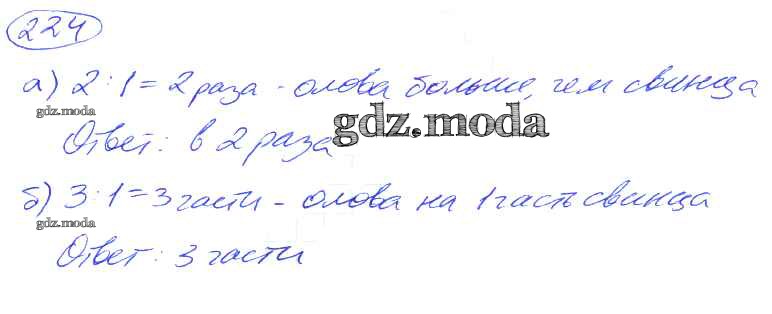 224
а) 2 : 1 = 2 раза - олова больше, чем свинца
gdz.moda
Ответ: в 2 раза
gdz.moda
б) 3 : 1 = 3 части - олова на 1 часть свинца
gdz.moda
Ответ: 3 части